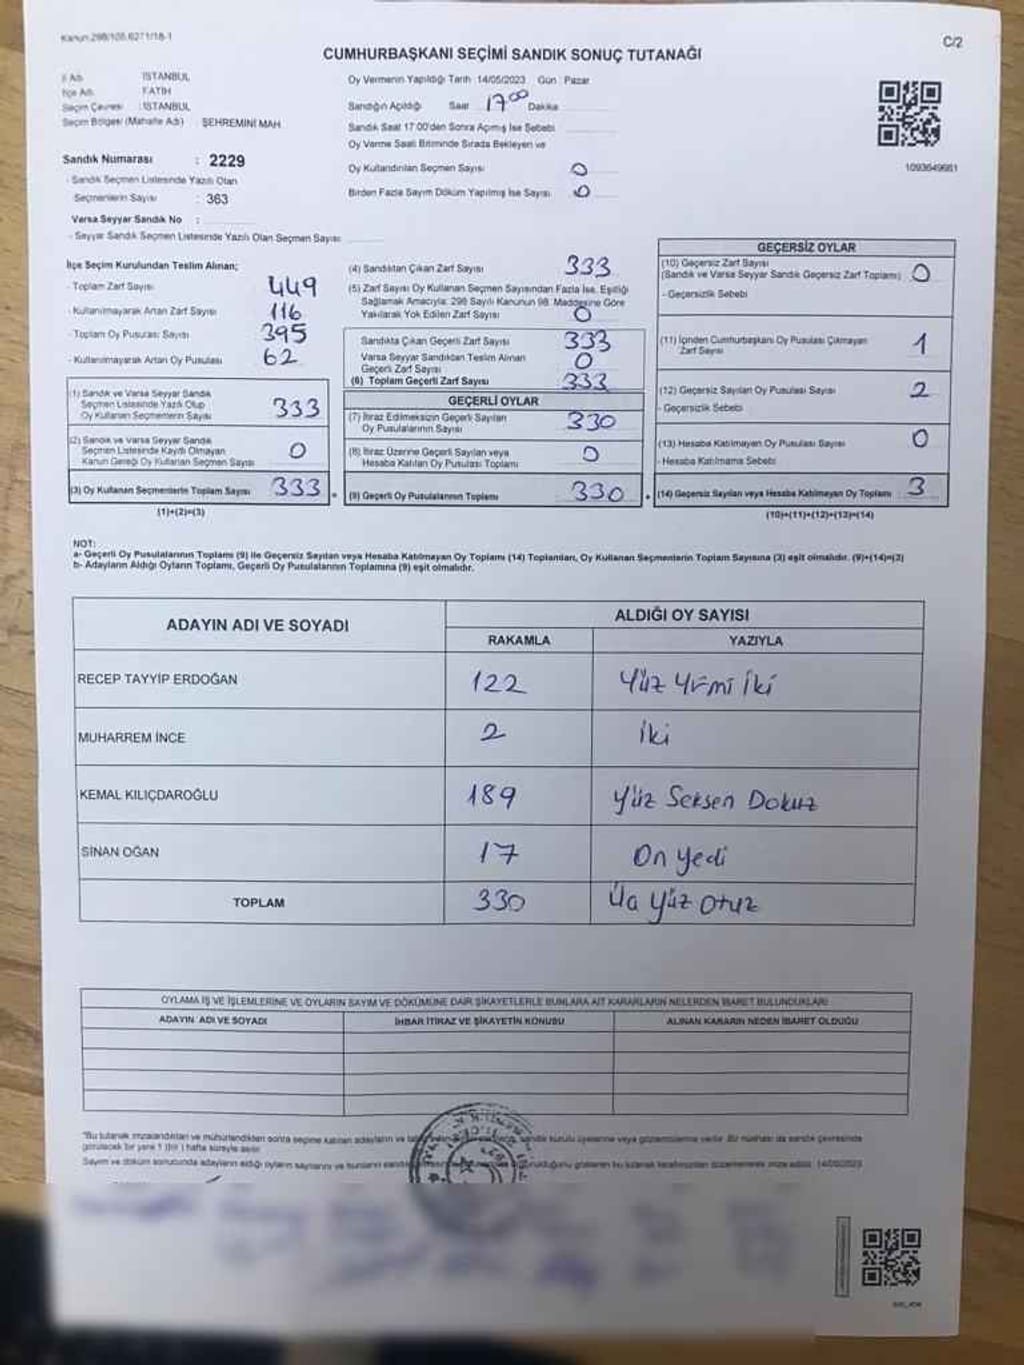 Kanun:298/105.6271/18-1
C/2
CUMHURBAŞKANI SEÇİMİ SANDIK SONUÇ TUTANAĞI
İl Adı : İSTANBUL
İlçe Adı : FATİH
Seçim Çevresi : İSTANBUL
Seçim Bölgesi (Mahalle Adı) : ŞEHREMİNİ MAH
Sandık Numarası : 2229
- Sandık Seçmen Listesinde Yazılı Olan
Seçmenlerin Sayısı : 363
Varsa Seyyar Sandık No :
- Seyyar Sandık Seçmen Listesinde Yazılı Olan Seçmen Sayısı
Oy Vermenin Yapıldığı Tarih :14/05/2023 Gün : Pazar
Sandığın Açıldığı Saat 17 00 Dakika
Sandık Saat 17:00'den Sonra Açımış İse Sebebi
Oy Verme Saati Bitiminde Sırada Bekleyen ve
Oy Kullandırılan Seçmen Sayısı 0
Birden Fazla Sayım Döküm Yapılmış İse Sayısı 0
1093649681
İlçe Seçim Kurulundan Teslim Alınan;
- Toplam Zarf Sayısı 449
- Kullanılmayarak Artan Zarf Sayısı 116
- Toplam Oy Pusulası Sayısı 395
- Kullanılmayarak Artan Oy Pusulası 62
(1) Sandık ve Varsa Seyyar Sandık
Seçmen Listesinde Yazılı Olup
Oy Kullanan Seçmenlerin Sayısı 333
(2) Sandık ve Varsa Seyyar Sandık
Seçmen Listesinde Kayıtlı Olmayan
Kanun Gereği Oy Kullanan Seçmen Sayısı 0
(3) Oy Kullanan Seçmenlerin Toplam Sayısı 333
(1)+(2)=(3)
(4) Sandıktan Çıkan Zarf Sayısı 333
(5) Zarf Sayısı Oy Kullanan Seçmen Sayısından Fazla İse, Eşitliği
Sağlamak Amacıyla; 298 Sayılı Kanunun 98. Maddesine Göre
Yakılarak Yok Edilen Zarf Sayısı 0
Sandıkta Çıkan Geçerli Zarf Sayısı 333
Varsa Seyyar Sandıktan Teslim Alınan
Geçerli Zarf Sayısı 0
(6) Toplam Geçerli Zarf Sayısı 333
GEÇERLİ OYLAR
(7) İtiraz Edilmeksizin Geçerli Sayılan
Oy Pusulalarının Sayısı 330
(8) İtiraz Üzerine Geçerli Sayılan veya
Hesaba Katılan Oy Pusulası Toplamı 0
(9) Geçerli Oy Pusulalarının Toplamı 330
GEÇERSİZ OYLAR
(10) Geçersiz Zarf Sayısı
(Sandık ve Varsa Seyyar Sandık Geçersiz Zarf Toplamı) 0
- Geçersizlik Sebebi
(11) İçinden Cumhurbaşkanı Oy Pusulası Çıkmayan
Zarf Sayısı 1
(12) Geçersiz Sayılan Oy Pusulası Sayısı 2
- Geçersizlik Sebebi
(13) Hesaba Katılmayan Oy Pusulası Sayısı 0
- Hesaba Katılmama Sebebi
(14) Geçersiz Sayılan veya Hesaba Katılmayan Oy Toplamı 3
(10)+(11)+(12)+(13)=(14)
NOT:
a- Geçerli Oy Pusulalarının Toplamı (9) ile Geçersiz Sayılan veya Hesaba Katılmayan Oy Toplamı (14) Toplamları, Oy Kullanan Seçmenlerin Toplam Sayısına (3) eşit olmalıdır. (9)+(14)=(3)
b- Adayların Aldığı Oyların Toplamı, Geçerli Oy Pusulalarının Toplamına (9) eşit olmalıdır.
ADAYIN ADI VE SOYADI
ALDIĞI OY SAYISI
RAKAMLA YAZIYLA
RECEP TAYYİP ERDOĞAN 122 Yüz Yirmi İki
MUHARREM İNCE 2 İki
KEMAL KILIÇDAROĞLU 189 Yüz Seksen Dokuz
SİNAN OĞAN 17 On yedi
TOPLAM 330 Üç Yüz Otuz
OYLAMA İŞ VE İŞLEMLERİNE VE OYLARIN SAYIM VE DÖKÜMÜNE DAİR ŞİKAYETLERLE BUNLARA AİT KARARLARIN NELERDEN İBARET BULUNDUKLARI
ADAYIN ADI VE SOYADI İHBAR İTİRAZ VE ŞİKAYETİN KONUSU ALINAN KARARIN NEDEN İBARET OLDUĞU
"Bu tutanak imzalandıktan ve mühürlendikten sonra seçime katılan adayların ve sandık kurulu üyelerine veya gözlemcilerine verilir. Bir nüshası da sandık çevresinde
görülecek bir yere 1 (bir) hafta süreyle asılır.
Sayım ve döküm sonucunda adayların aldığı oyların sayılarını ve bunların gösteren bu tutanak tarafımızdan düzenlenerek imza edildi. 14/05/2023